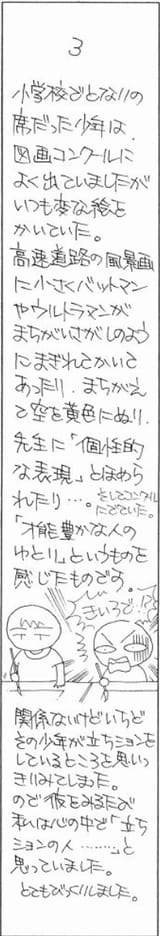 3
小学校でとなりの
席だった少年は、
図画コンクールに
よく出ていましたが
いつも変な絵を
かいていた。
高速道路の風景画
に小さくバットマン
やウルトラマンが
まちがいさがしのよう
にまぎれてかいて
あったり、まちがえ
て空を黄色にぬり、
先生に「個性的
な表現」とほめら
れたり…。そしてコンクール
にでていた。
「才能豊かな人の
ゆとり」というものを
感じたものです。
きいろで…!?
関係ないけどいちど
その少年が立ちションを
しているところを思いっ
きりみてしまった。
ので彼をみるたび
私は心の中で「立ち
ションの人………」と
思っていました。
とてもびっくりしました。